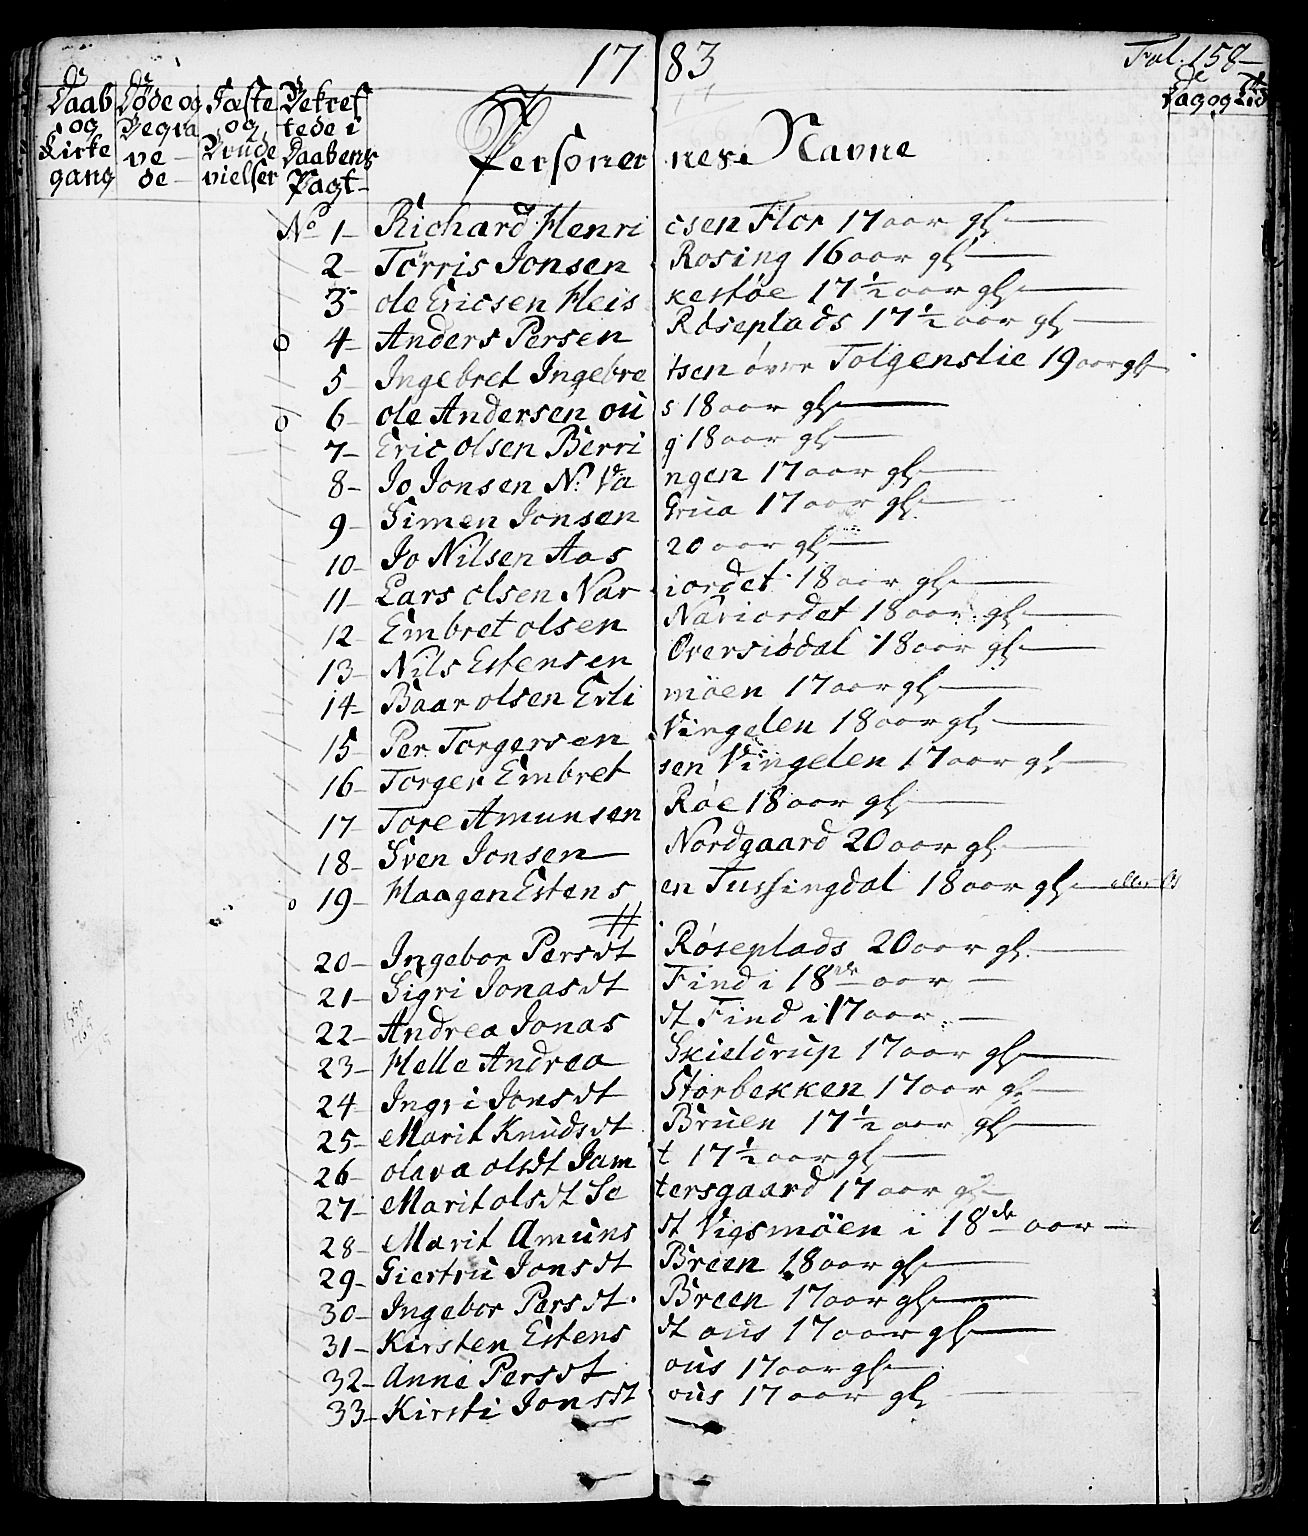 1783 Fol. 158
Daab og Kirke gang
Døde og Begra ve de
Fæste og Brude vielser
Bekref tede i Daabens Pagt
Personernes Navne
Dag og Tid
No 1 Richard Henricsen Flor 17 aar gl.
2 Torris Jonsen Rosing 16 aar gl.
3 ole Ericsen Heiskestøe 17 1/2 aar gl.
o 4 Anders Persen Røseplads 17 1/2 aar gl.
5 Ingebret Ingebretsen øvre Tolgenslie 19 aar gl.
o 6 ole Andersen ous 18 aar gl.
7 Eric olsen Berrig 18 aar gl.
8 Jo Jonsen N. Vangen 17 aar gl.
9 Simen Jonsen Grua 17 aar gl.
10 Jo Nilsen Aas 20 aar gl.
11 Lars olsen Nariordet 18 aar gl.
12 Embret olsen Nariordet 18 aar gl.
13 Nils Estensen Øversiødal 18 aar gl.
14 Baar olsen Erlimöen 17 aar gl.
15 Per Torgersen Vingelen 18 aar gl.
16 Torger Embretsen Vingelen 17 aar gl.
17 Tore Amunsen Røe 18 aar gl.
18 Sven Jonsen Nordgaard 20 aar gl.
o 19 Haagen Estensen Tussingdal 18 aar gl. eller
20 Ingebor Persdt Røseplads 20 aar gl.
21 Sigri Jonasdt Find i 18de aar
22 Andrea Jonasdt Find i 17 aar
23 Helle Andrea Skieldrup 17 aar gl.
24 Ingri Jonsdt Storbekken 17 aar gl.
25 Marit Knudsdt Bruen 17 1/2 aar gl.
26 olava olsdt Jamt 17 1/2 aar gl.
27 Marit olsdt Setersgaard 17 aar gl.
28 Marit Amunsdt Vigsmöen i 18de aar
29 Giertru Jonsdt Breen 18 aar gl.
30 Ingebor Persdt. Breen 17 aar gl.
31 Kirsten Estensdt ous 17 aar gl.
32 Anne Persdt ous 17 aar gl.
33 Kirsti Jonsdt ous 17 aar gl.